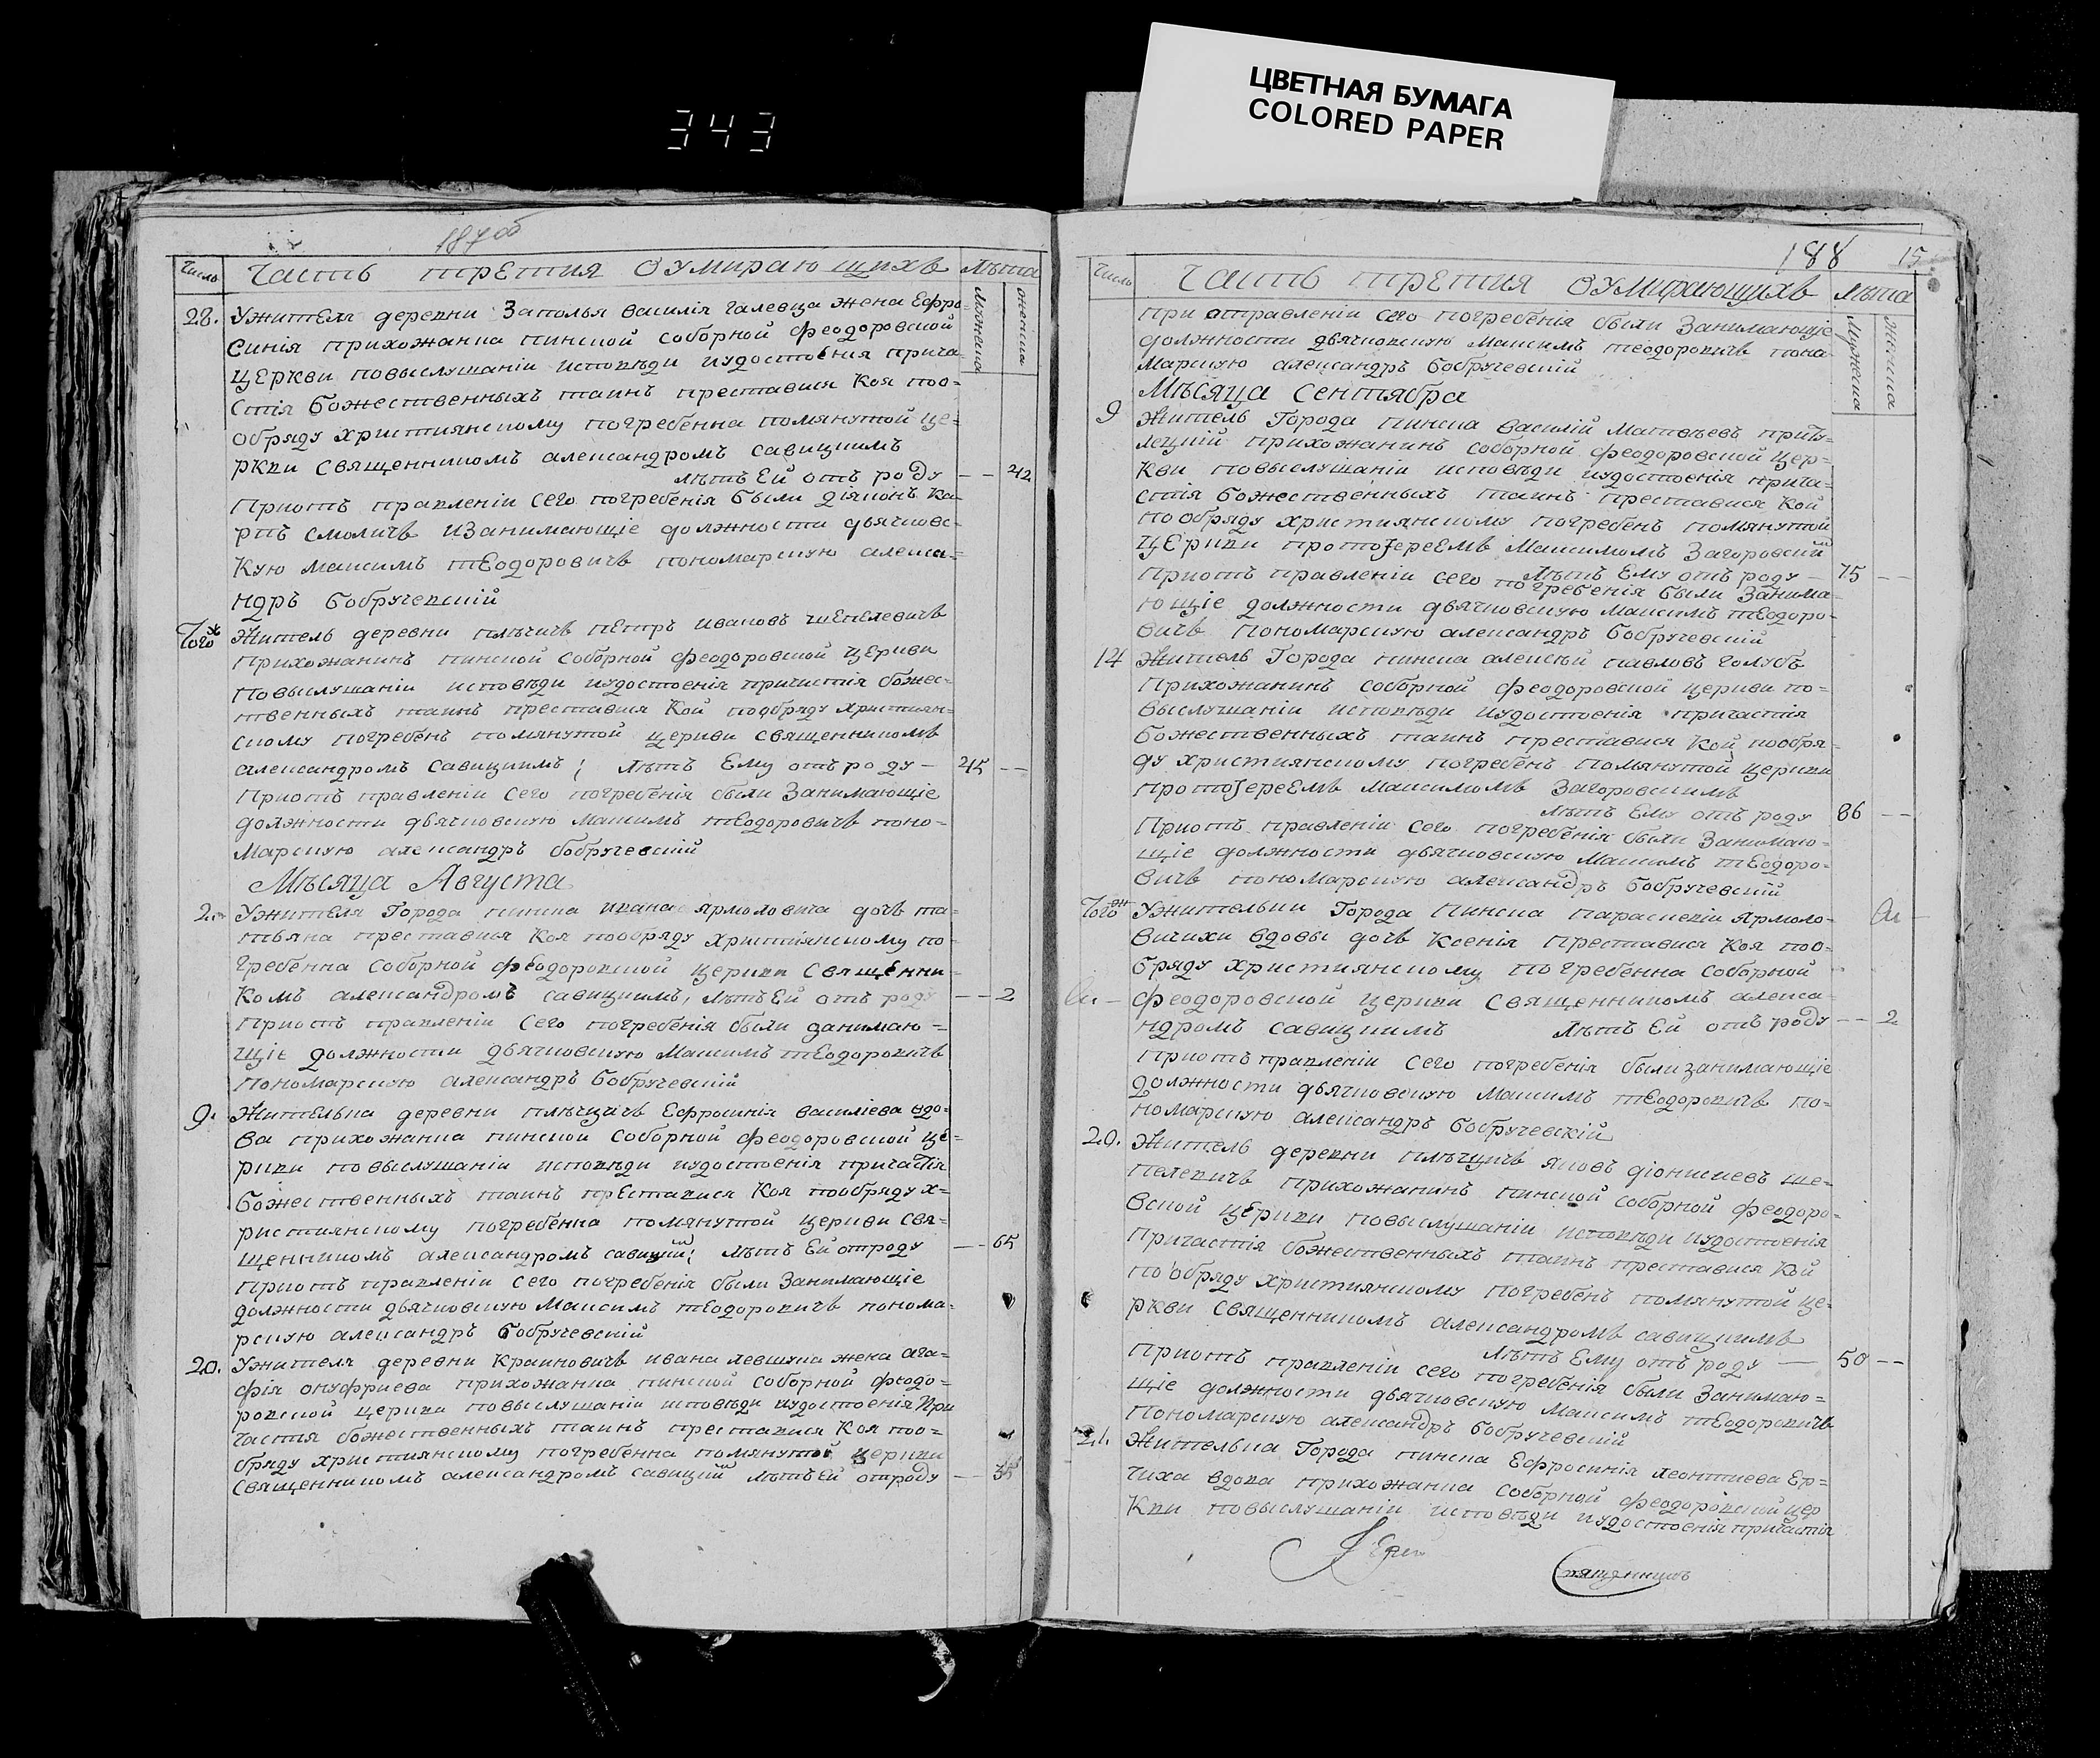 ЦВЕТНАЯ БУМАГА
COLORED PAPER
343
187 об
Число Часть третия о умирающихъ Лѣта
мужеска женска
28. У жителя деревни Заполья василія галевца жена Ефро-
синія прихожанка пинской соборной феодоровской
церкви по выслушаніи исповѣди и удостоенія прича-
стія божественныхъ таинъ преставися Коя поо-
обряду християнскому погребенна помянутой це-
ркви священникомъ александромъ савицкимъ
лѣтъ Ей отъ роду — — 42
При отъ правленіи сего погребенія были діяконъ Ка-
рпъ смоличъ и Занимающіе должности дьячковс-
Кую максимъ теодоровичъ пономарскую алекса-
ндръ бобручевский
Того ж Житель деревни плѣщичъ пЕтръ ивановъ шепелевичъ
прихожанинъ пинской соборной феодоровской церкви
по выслушаніи исповѣди и удостоенія причистія божес-
твенныхъ таинъ преставися Кой по обряду християн-
скому погребенъ помянутой церкви священникомъ
александромъ савицкимъ; лѣтъ Ему отъ роду — 45 — —
При отъ правленіи сего погребенія были Занимающіе
должности дьячковскую максимъ теодоровичъ поно-
марскую александръ бобручевскій
Мѣсяца Августа
2. У жителя Города пинска ивана ярмоловича дочь та-
тьяна преставися Коя по обряду христіянскому по-
гребенна соборной феодоровской церкви священни-
Комъ александромъ савицкимъ, лѣтъ Ей отъ роду — — 2
При отъ правленіи сего погребенія были занимаю-
щіе должности дьячковскую Максимъ теодоровичъ
пономарскую александръ бобручевскій
9. Жителька деревни плѣщичъ Ефросинія василіева вдо-
ва прихожанка пинской соборной феодоровской це-
ркви по выслушаніи исповѣди и удостоенія причастія
божественныхъ таинъ преставися Коя по обряду х-
ристиянскому погребенна помянутой церкви свя-
щенникомъ александромъ савицкимъ; лѣтъ Ей от роду — — 65
При отъ правленіи сего погребенія были Занимающіе
должности дьячковскую Максимъ теодоровичъ понома-
рскую александръ бобручевскій
20. У жителя деревни Крайновичъ ивана левшука жена ага-
фія онуфриева прихожанка пинской соборной феодо-
ровской церкви по выслушаніи исповѣди и удостоенія При
частія божественныхъ таинъ преставися Коя поо-
бряду християнскому погребенна помянутой церкви
священникомъ александромъ савицкимъ лѣтъ Ей от роду — — 35
188 15
Число Часть третия о умирающихъ лѣта
Мужеска женска
при отправленіи сего погребенія были Занимающіе
должности дьячковскую максимъ теодоровичъ поно-
марскую александръ бобручевский
Мѣсяца Сентября
9 Житель Города пинска василий матвѣевъ
прихожанинъ соборной феодоровской цер-
кви по выслушаніи исповѣди и удостоенія прича-
стія божественныхъ таинъ преставися Кой
по обряду християнскому погребенъ помянутой
церкви протоіереемъ максимомъ Загоровским
Лѣтъ Ему отъ роду — 75 — —
При отъ правленіи сего погребенія были Занима-
ющіе должности дьячковскую максимъ теодоро-
вичъ пономарскую александръ бобручевскій
14 Житель Города пинска алексѣй павловъ голубъ
прихожанинъ соборной феодоровской церкви по-
выслушаніи исповѣди и удостоенія причастія
божественныхъ таинъ преставися Кой по обря-
ду християнскому погребенъ помянутой церкви
протоіереемъ максимомъ Загоровскимъ
лѣтъ Ему отъ роду 86 — —
При отъ правленіи сего погребенія были Занимаю-
щіе должности дьячковскую Максимъ теодоро-
вичъ пономарскую александръ бобручевскій
Того ж У жительки Города Пинска параскевіи Ярмоло-
вичихи вдовы дочь Ксенія преставися Коя поо-
бряду християнскому погребенна соборной
феодоровской церкви священникомъ алекса-
ндромъ савицкимъ лѣтъ Ей отъ роду — — 2
При отъ правленіи сего погребенія были занимающіе
должности дьячковскую Максимъ теодоровичъ по-
номарскую александръ бобручевскій
20. Житель деревни плѣщичъ яковъ діонисиевъ ше-
пелевичъ прихожанинъ пинской соборной феодоро-
вской церкви по выслушаніи исповѣди и удостоенія
причастія божественныхъ таинъ преставися Кой
по обряду християнскому погребенъ помянутой це-
ркви священникомъ александромъ савицкимъ
лѣтъ Ему отъ роду — 50 — —
При отъ правленіи сего погребенія были Занимаю-
щіе должности дьячковскую Максимъ теодоровичъ
пономарскую александръ бобручевский
21. Жителька Города пинска Ефросинія леонтиева Ер-
чиха вдова прихожанка соборной феодоровской цер
Кви по выслушаніи исповѣди и удостоенія причастія
Іерей
священникъ